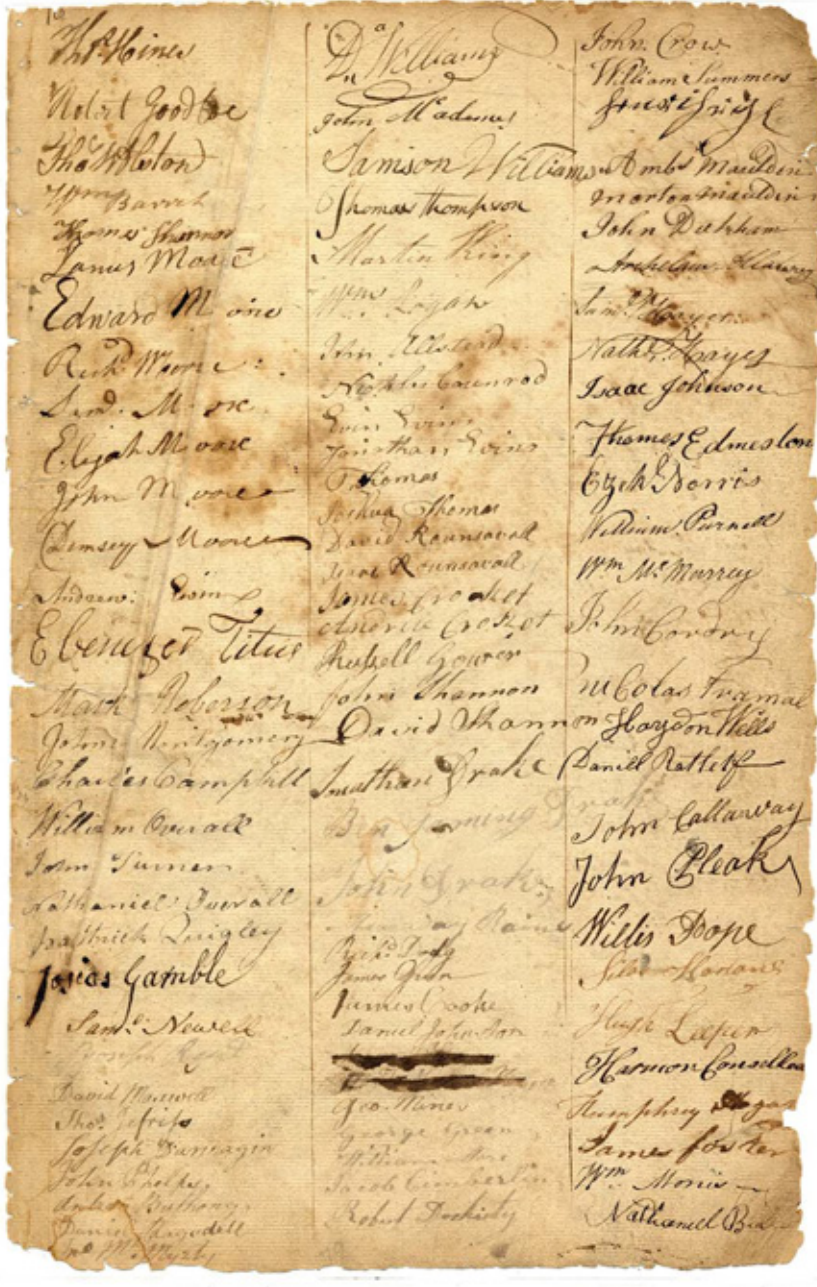 Thos. Hines
Robert Goodloe
Thos. Molloy
Wm Barret
Thomas Shannon
James Moore
Edward Moore
Richd Moore
Saml. Moore
Elijah Moore
John Moore
Demsey Moore
Andrew: Ewin
Ebenezer Titus
Mark Roberson
John Montgomery
Charles Campbell
William Overall
John Turner
Nathaniel Overall
Patrick Quigley
Josias Gamble
Saml. Newell
Joseph
David Maxwell
Thos. Jefriss
Joseph Dunnagin
John Phelps
Andrew Bushony
Daniel Ragsdell
Jno. McMyrty
Da. Williams
John McAdams
Samson Williams
Thomas Thompson
Martin King
Wm. Logan
John Allstead
Nicholas Counrod
Evin Evins
Jonathan Evins
Thomas
Joshua Thomas
David Rounsavall
Isaac Rounsavall
James Crocket
Andrew Crocket
Russell Gower
John Shannon
David Shannon
Jonathan Drake
Benjaming Drake
John Drake
Rains
Richd. Dodg
James Green
James Cooke
Daniel Johnston
Geo. Miner
George Green
William
Jacob Cimberlin
Robert Dockerty
John Crow
William Summers
Ambs Mauldin
Morton Mauldin
John Dunham
Archelaus Allaway
Saml. Hayes
Nathl. Hayes
Isaac Johnson
Thomas Edmeston
Ezekl Norris
William Purnell
Wm McMurrey
John Cordry
Nicolas Tramal
Haydon Wells
Daniel Ratleff
John Callaway
John Pleak
Willis Pope
Silas Harlan
Hugh Leeper
Harmon Consellea
Humphrey Hogan
James foster
Wm Morris
Nathaniel